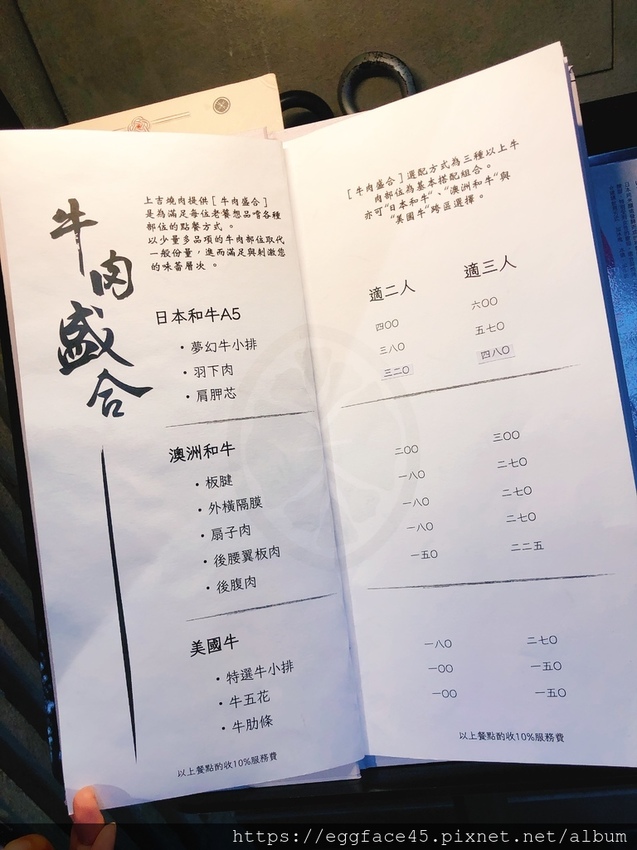 牛肉盛合
上吉燒肉提供[牛肉盛合]
是為滿足每位老饕想品嚐各種
部位的點餐方式。
以少量多品項的牛肉部位取代
一般份量,進而滿足與刺激您
的味蕾層次。
日本和牛A5
・夢幻牛小排
・羽下肉
・肩胛芯
澳洲和牛
・板腱
・外橫隔膜
・扇子肉
・後腰翼板肉
・後腹肉
美國牛
・特選牛小排
・牛五花
・牛肋條
以上餐點酌收10%服務費
[牛肉盛合]選配方式為三種以上牛
肉部位為基本搭配組合。
亦可"日本和牛"、"澳洲和牛"與
"美國牛"跨區選擇。
適二人 適三人
四〇〇 六〇〇
三八〇 五七〇
三二〇 四八〇
二〇〇 三〇〇
一八〇 二七〇
一八〇 二七〇
一八〇 二七〇
一五〇 二二五
一八〇 二七〇
一〇〇 一五〇
一〇〇 一五〇
以上餐點酌收10%服務費
https://eggface45.pixnet.net/album